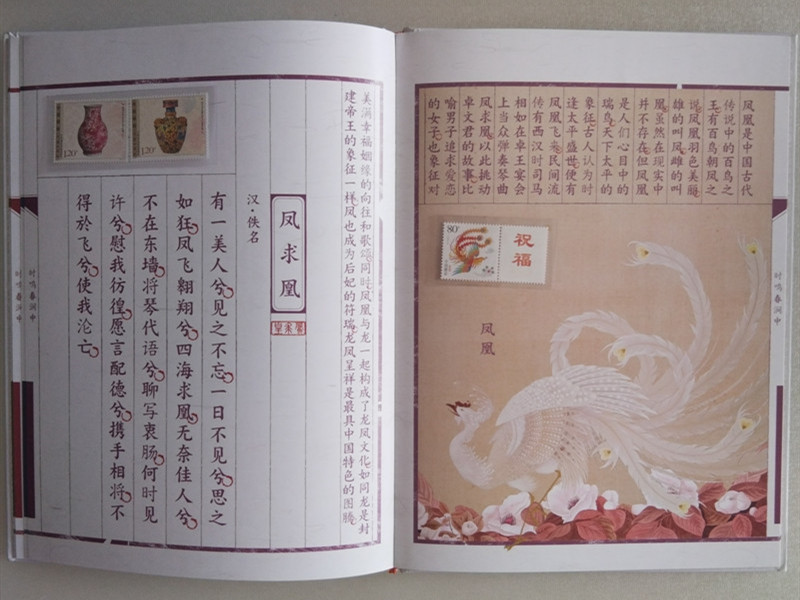 凤凰是中国古代
传说中的百鸟之
王有百鸟朝凤之
说凤凰羽色美丽
雄的叫凤雌的叫
凰虽然在现实中
并不存在但凤凰
是人们心目中的
瑞鸟天下太平的
象征古人认为时
逢太平盛世便有
凤凰飞来民间流
传有西汉时司马
相如在卓王宴会
上当众弹奏琴曲
凤求凰以此挑动
卓文君的故事比
喻男子追求爱恋
的女子也象征对
80分
祝福
凤凰
时鸣春涧中
美满幸福姻缘的向往和歌颂同时凤凰与龙一起构成了龙凤文化如同龙是封
建帝王的象征一样凤也成为后妃的符瑞龙凤呈祥是最具中国特色的图腾
凤求凰
汉·佚名
有一美人兮见之不忘一日不见兮思之
如狂凤飞翱翔兮四海求凰无奈佳人兮
不在东墙将琴代语兮聊写衷肠何时见
许兮慰我彷徨愿言配德兮携手相将不
得於飞兮使我沦亡
1.20元
1.20元
时鸣春涧中
时鸣春涧中